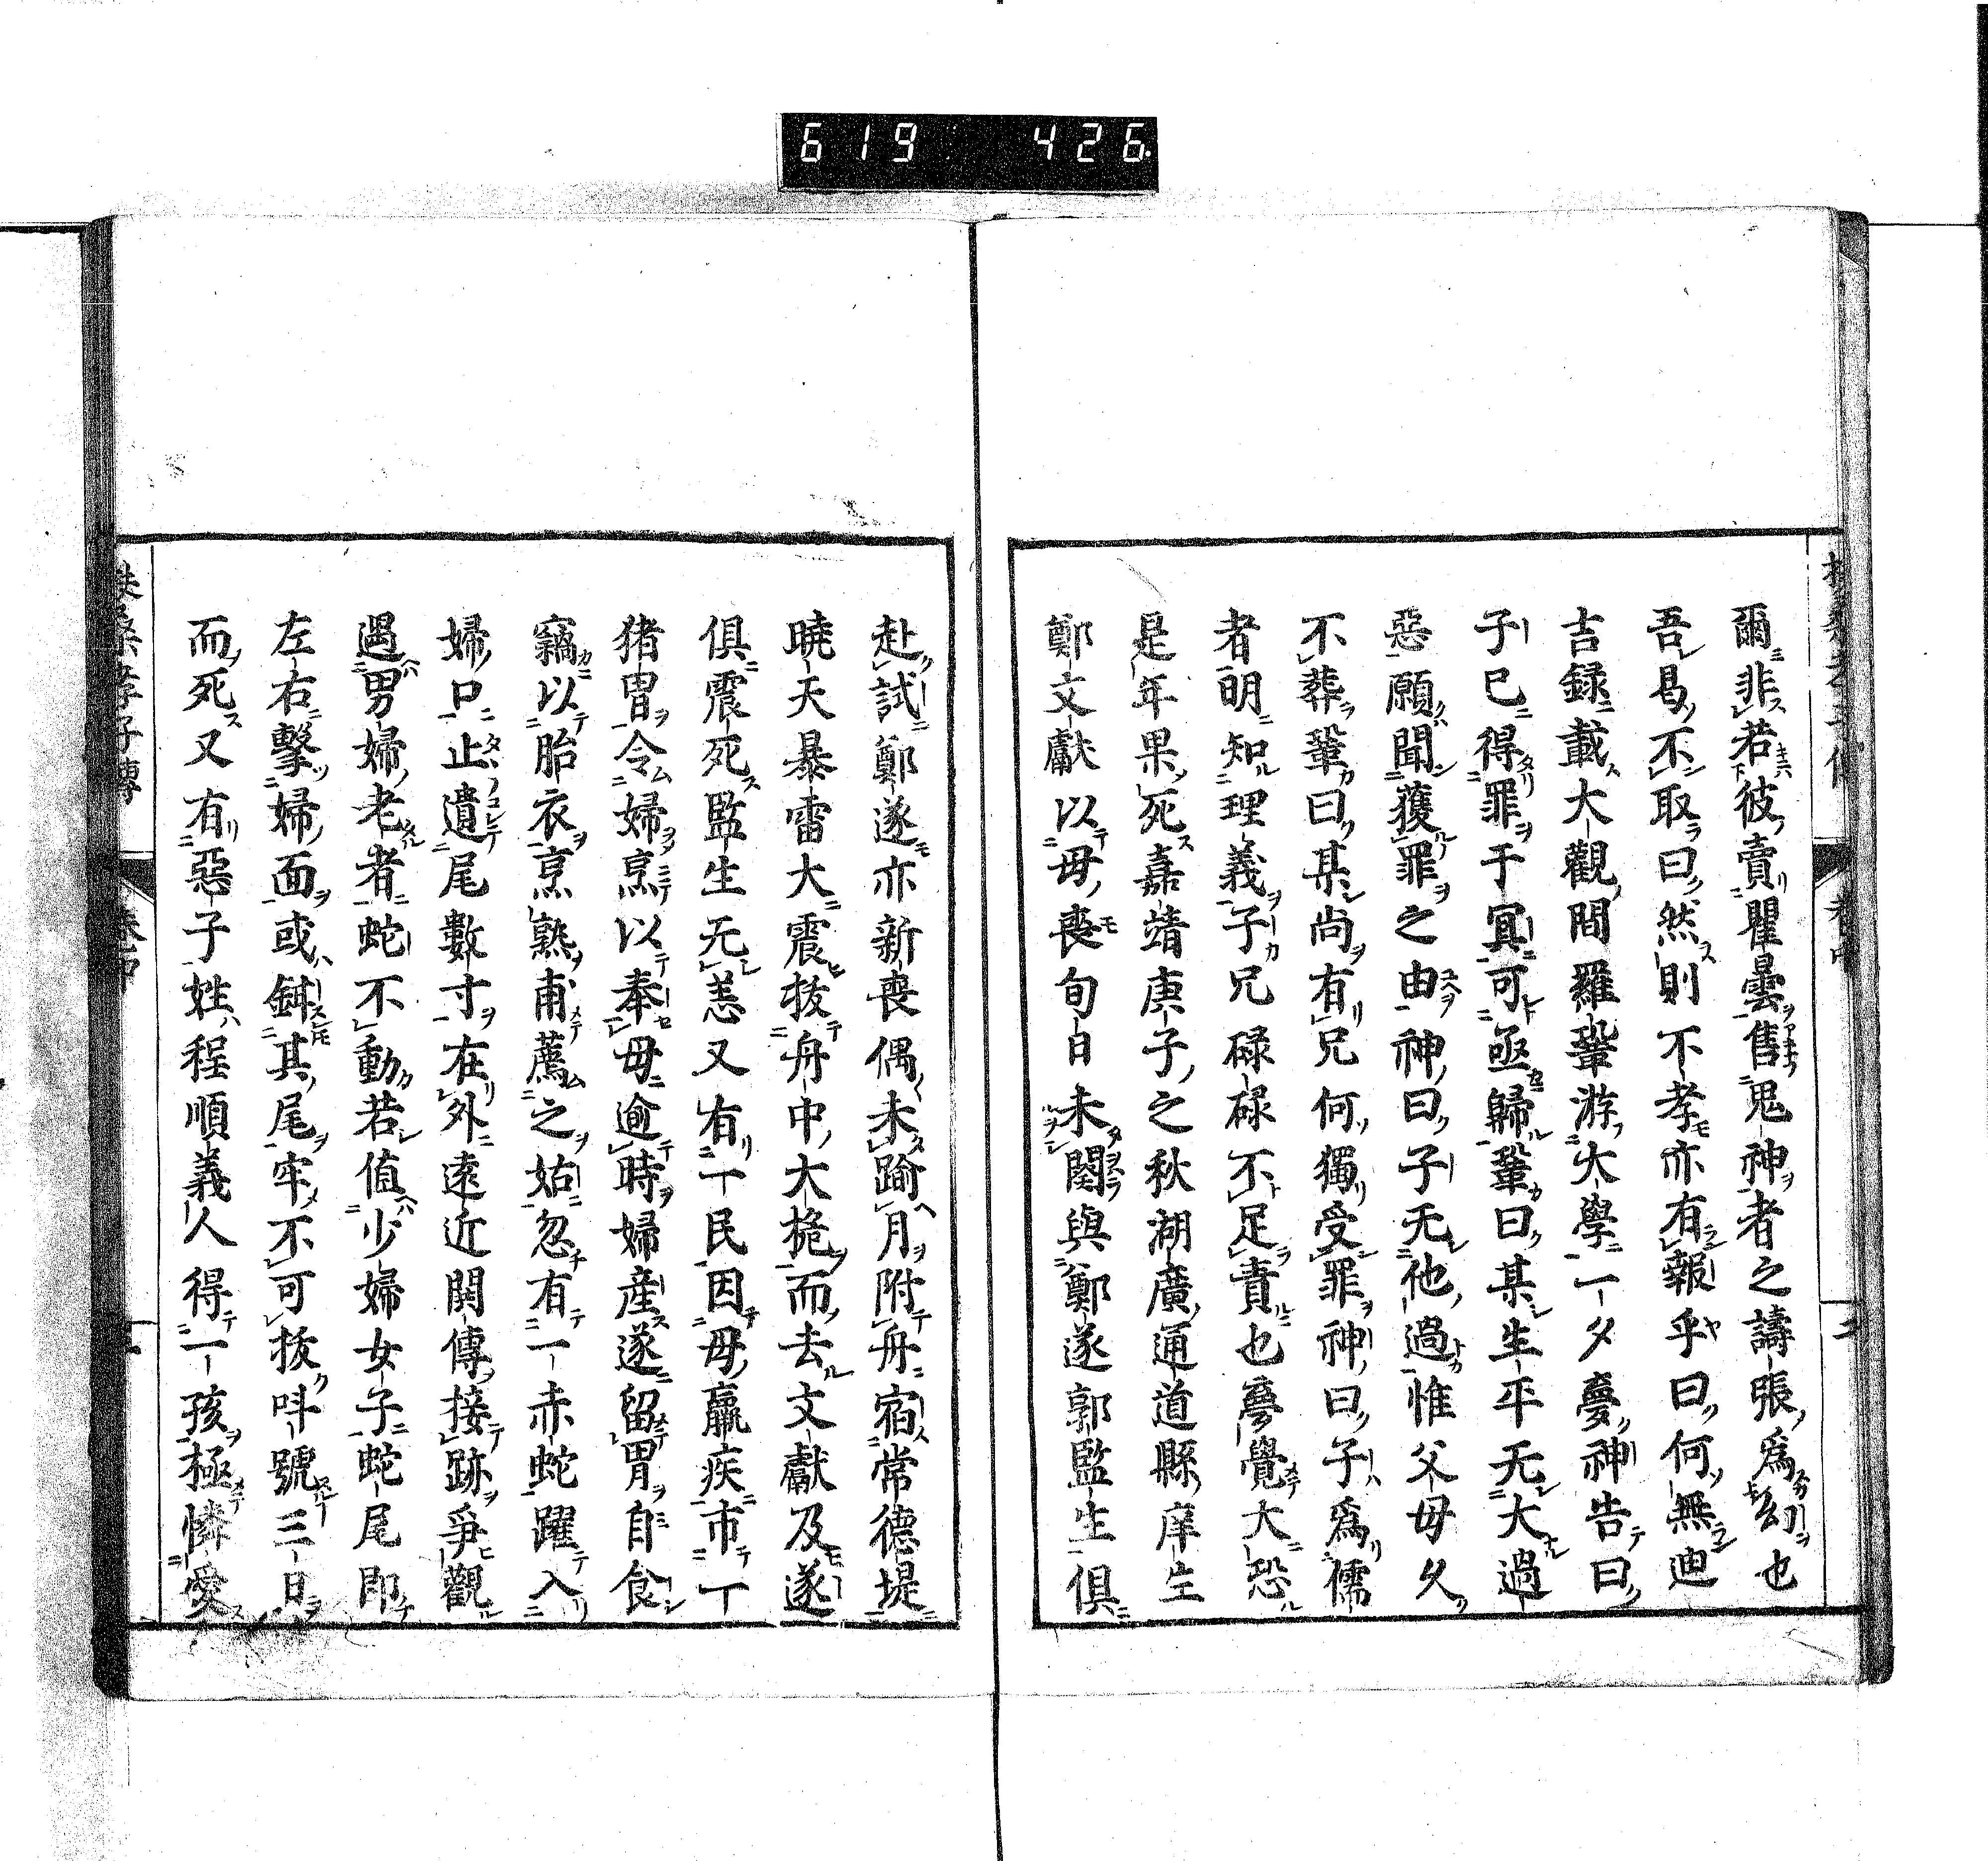 619 426
爾非若彼賣瞿曇售鬼神者之譸張爲幻也
吾曷不取曰然則不孝亦有報乎曰何無迪
吉録載大觀間羅鞏游大學一夕夢神告曰
子已得罪于冥可亟歸鞏曰某生平无大過
惡願聞獲罪之由神曰子无他過惟父母久
不葬鞏曰某尚有兄何獨受罪神曰子爲儒
者明知理義子兄碌碌不足責也夢覺大恐
是年果死嘉靖庚子之秋湖廣通道縣庠生
鄭文獻以母喪旬日未闋與鄭遂郭監生俱
赴試鄭遂亦新喪偶未踰月附舟宿常德堤
曉天暴雷大震拔舟中大桅而去文獻及遂
俱震死監生无恙又有一民因母羸疾市一
猪胃令婦烹以奉母逾時婦産遂留胃自食
竊以胎衣烹熟甫薦之姑忽有一赤蛇躍入
婦口止遺尾數寸在外遠近閧傳接跡爭觀
遇男婦老者蛇不動若值少婦女子蛇尾即
左右擊婦面或鉗其尾牢不可拔呌號三日
而死又有惡子姓程順義人得一孩極憐愛
扶桑孝子傳 卷中